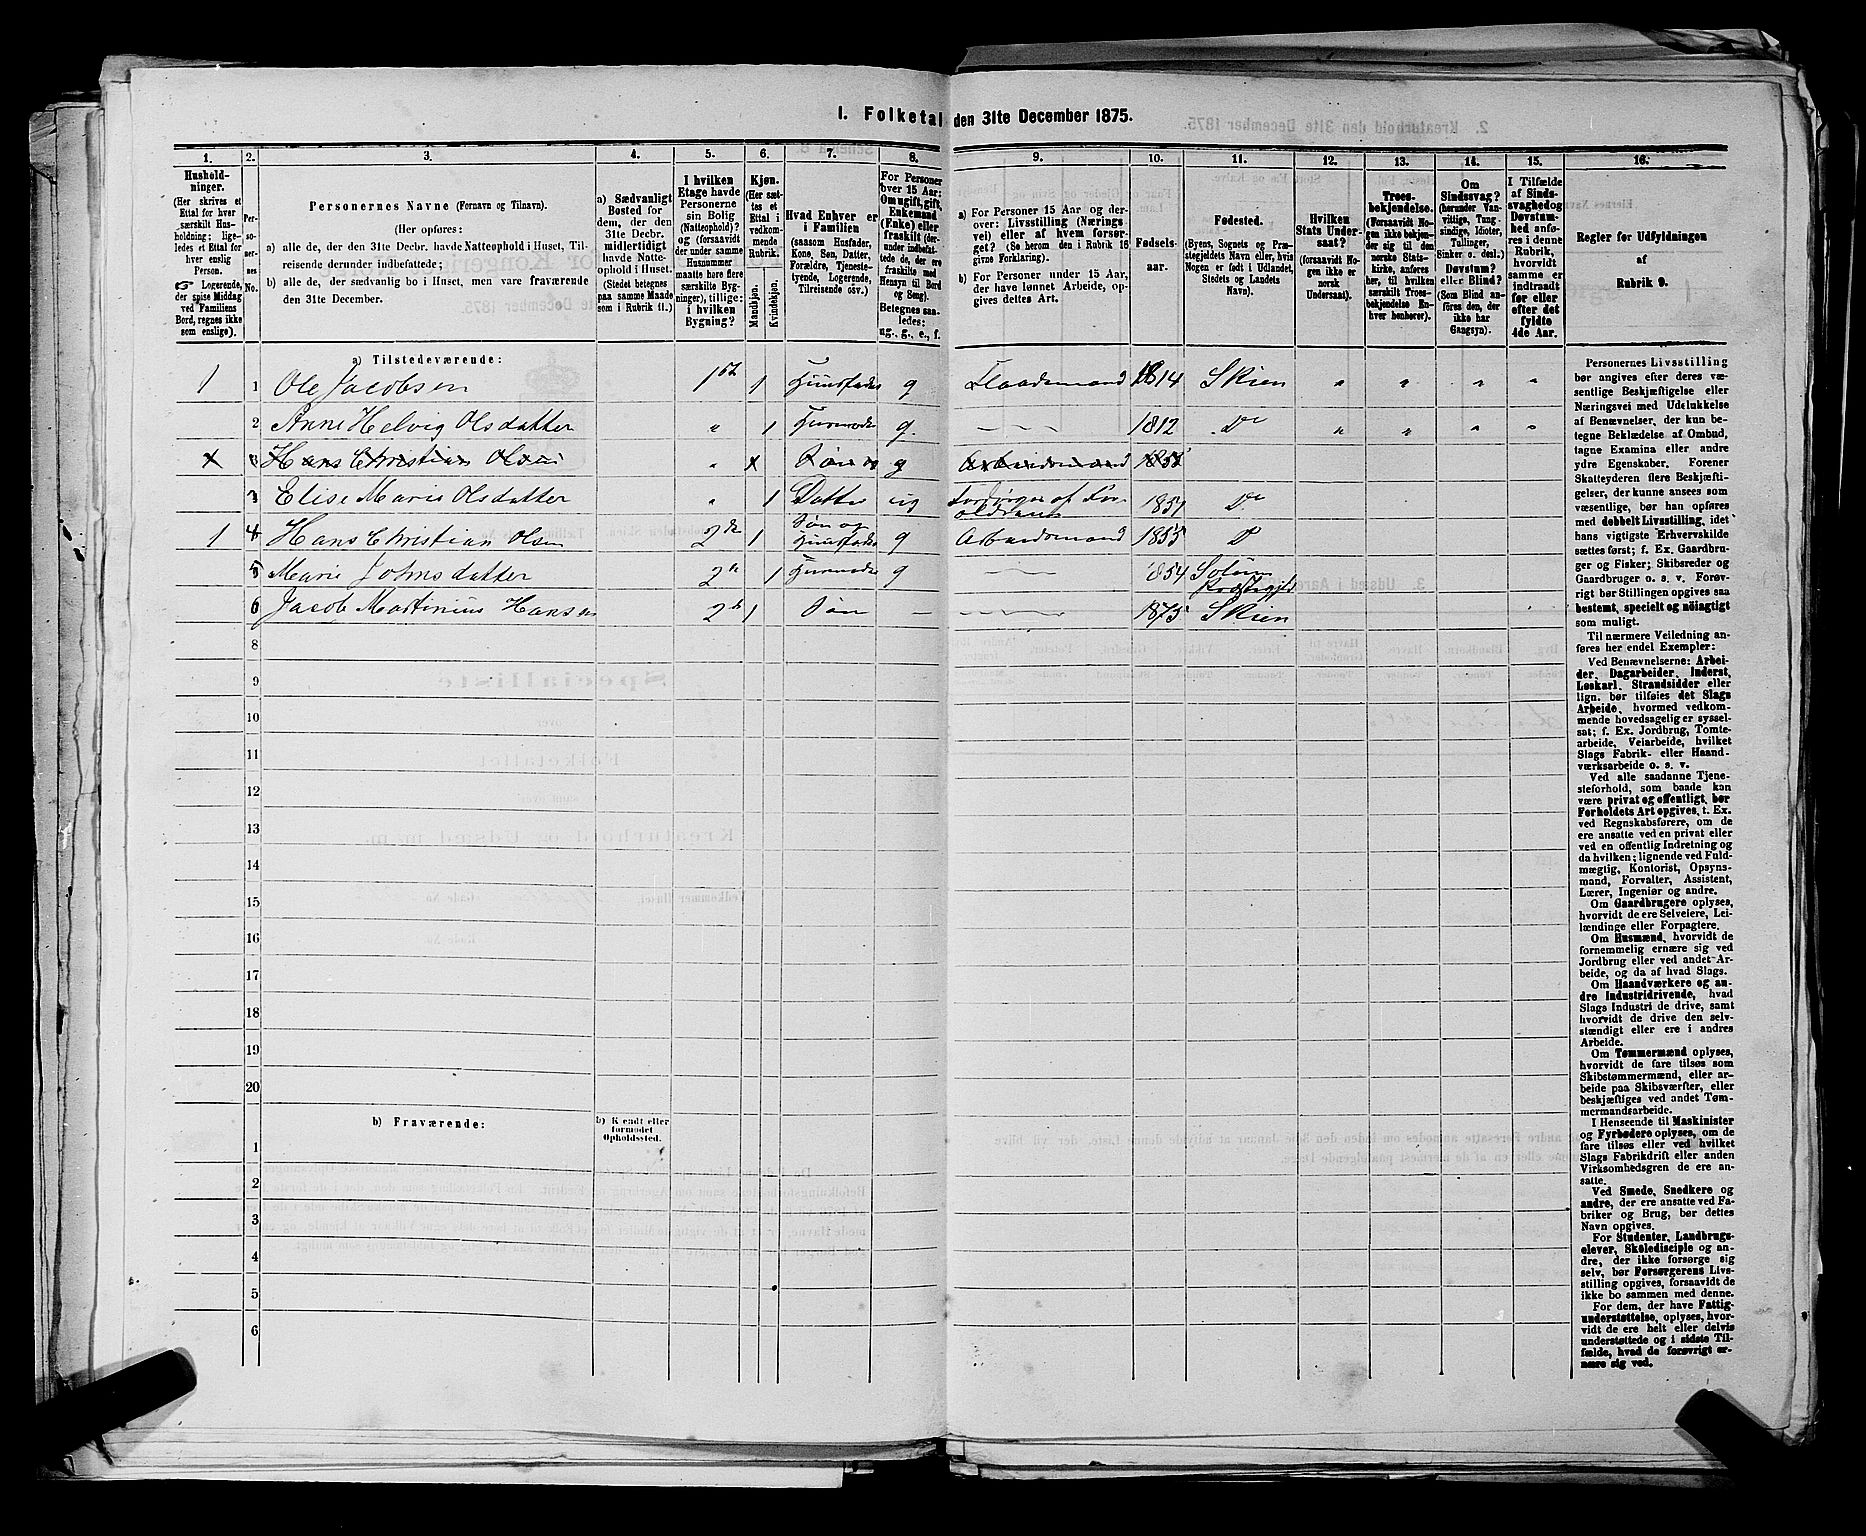 1. Folketal den 31te December 1875.
1. 2. 3. 4. 5. 6. 7. 8. 9. 10. 11. 12. 13. 14. 15. 16.
Hushold-
ninger.
(Her skrives et
Ettal for hver
særskilt Hus-
holdning; lige-
ledes et Ettal
for hver enslig
Person.
☞ Logerende,
der spise Middag
ved Familiens
Bord, regnes ikke
som enslige).
Per-
so-
ner-
nes
No.
Personernes Navne (Fornavn og Tilnavn).
(Her opføres:
a) alle de, der den 31te Decbr. havde Natteophold i Huset, Til-
reisende derunder indbefattede;
b) alle de, der sædvanlig bo i Huset, men vare fraværende
den 31te December.
a) Sædvanligt
Bosted for
dem, der den
31te Decbr.
midlertidigt
havde Natte-
ophold i Huset.
(Stedet betegnes
paa samme Maade
som i Rubrik 11.)
I hvilken
Etage havde
Personerne
sin Bolig
(Natteophold)?
og (forsaavidt
der under samme
Husnummer
maatte høre flere
særskilte Byg-
ninger), tillige:
i hvilken
Bygning?
Kjøn.
(Her sæt-
tes et
Ettal i
vedkom-
mende
Rubrik.
Mandkjøn.
Kvindekjøn.
Hvad Enhver er
i Familien
(saasom Husfader,
Kone, Søn, Datter,
Forældre, Tjeneste-
tyende, Logerende,
Tilreisende osv.)
For Personer
over 15 Aar:
Om ugift, gift,
Enkemand
(Enke) eller
fraskilt (der-
under indbefat-
tede de, der ere
fraskilte med
Hensyn til Bord
og Seng).
Betegnes saa-
ledes:
ug., g., e., f.
a) For Personer 15 Aar og der-
over: Livsstilling (Nærings-
vei) eller af hvem forsør-
get? (Se herom den i Rubrik 16
givne Forklaring).
b) For Personer under 15 Aar,
der have lønnet Arbeide, op-
gives dettes Art.
Fødsels-
aar.
Fødested.
(Byens, Sognets og Præ-
stegjeldets Navn eller, hvis
Nogen er født i Udlandet,
Stedets og Landets
Navn).
Hvilken
Stats Under-
saat?
(forsaavidt No-
gen ikke er
norsk
Undersaat).
Troes-
bekjendelse.
(Forsaavidt No-
gen ikke bekjen-
der sig til den
norske Stats-
kirke, anføres
her, til hvilken
særskilt Troes-
bekjendelse En-
hver henhører).
Om
Sindssvag?
(herunder Van-
vittige, Tung-
sindige, Idioter,
Tullinger,
Sinker o. desl.)
Døvstum?
eller Blind?
(Som Blind an-
føres den, der
ikke har
Gangsyn).
I Tilfælde
af Sinds-
svaghed og
Døvstum-
hed anfø-
res i denne
Rubrik,
hvorvidt
samme er
indtraadt
før eller
efter det
fyldte
4de Aar.
Regler for Udfyldningen
af
Rubrik 9.
a) Tilstedeværende:
1 1 Ole Jacobsen 1ste 1 Huusfader g Flaadsmand 1814 Skien „ „ „ „
2 Anne Helvig Olsdatter „ 1 Huusmoder g. 1812 Do „ „ „ „
x 3 Hans Christian Olsen „ x Søn og g Arbeidsmand 1855
3 Elise Marie Olsdatter „ 1 Datter ug Forsørges af For-
ældrene 1857 Do
1 4 Hans Christian Olsen 2den 1 Søn og
Huusfader g Arbeidsmand 1855 D
5 Marie Johnsdatter 2n 1 Huusmoder g 1854 Solum
Præstegjeld
6 Jacob Martinius Hansen 2d 1 Søn — 1875 Skien
8
9
10
11
12
13
14
15
16
17
18
19
20
b) Fraværende:
b) Kjendt eller
formodet
Opholdssted.
1
2
3
4
5
6
Personernes Livsstilling
bør angives efter deres væ-
sentlige Beskjæftigelse eller
Næringsvei med Udelukkelse
af Benævnelser, der kun be-
tegne Beklædelse af Ombud,
tagne Examina eller andre
ydre Egenskaber. Forener
Skatteyderen flere Beskjæfti-
gelser, der kunne ansees som
væsentlige, bør han opføres
med dobbelt Livsstilling, idet
hans vigtigste Erhvervskilde
sættes først; f. Ex. Gaardbru-
ger og Fisker; Skibsreder og
Gaardbruger o. s. v. Forøv-
rigt bør Stillingen opgives saa
bestemt, specielt og nöiagtigt
som muligt.
Til nærmere Veiledning an-
føres her endel Exempler:
Ved Benævnelserne: Arbei-
der, Dagarbeider, Inderst,
Løskarl, Strandsidder eller
lign. bør tilføies det Slags
Arbeide, hvormed vedkom-
mende hovedsagelig er syssel-
sat; f. Ex. Jordbrug, Tomte-
arbeide, Veiarbeide, hvilket
Slags Fabrik- eller Haand-
værksarbeide o. s. v.
Ved alle saadanne Tjene-
steforhold, som baade kan
være privat og offentligt, bør
Forholdets Art opgives, t. Ex.
ved Regnskabsførere, om de
ere ansatte ved en privat eller
ved en offentlig Indretning og
da hvilken; lignende ved Fuld-
mægtig, Kontorist, Opsyns-
mand, Forvalter, Assistent,
Lærer, Ingeniør og andre.
Om Gaardbrugere oplyses,
hvorvidt de ere Selveiere, Lei-
lændinge eller Forpagtere.
Om Husmænd, hvorvidt de
fornemmelig ernære sig ved
Jordbrug eller ved andet Ar-
beide, og da af hvad Slags.
Om Haandværkere og an-
dre Industridrivende, hvad
Slags Industri de drive, samt
hvorvidt de drive den selv-
stændigt eller ere i andres
Arbeide.
Om Tømmermænd oplyses,
hvorvidt de fare tilsøs som
Skibstømmermænd, eller ar-
beide paa Skibsværfter, eller
beskjæftiges ved andet Tøm-
mermandsarbeide.
I Henseende til Maskinister
og Fyrbødere oplyses, om de
fare tilsøs eller ved hvilket
Slags Fabrikdrift eller anden
Virksomhedsgren de ere an-
satte.
Ved Smede, Snedkere og
andre, der ere ansatte ved Fa-
briker og Brug, bør dettes
Navn opgives.
For Studenter, Landbrugs-
elever, Skoledisciple og an-
dre, der ikke forsørge sig
selv, bør Forsørgerens Livs-
stilling opgives, forsaavidt de
ikke bo sammen med denne.
For dem, der have Fattig-
understøttelse, oplyses, hvor-
vidt de ere helt eller delvis
understøttede og i sidste Til-
fælde, hvad de forøvrigt er-
nære sig ved.